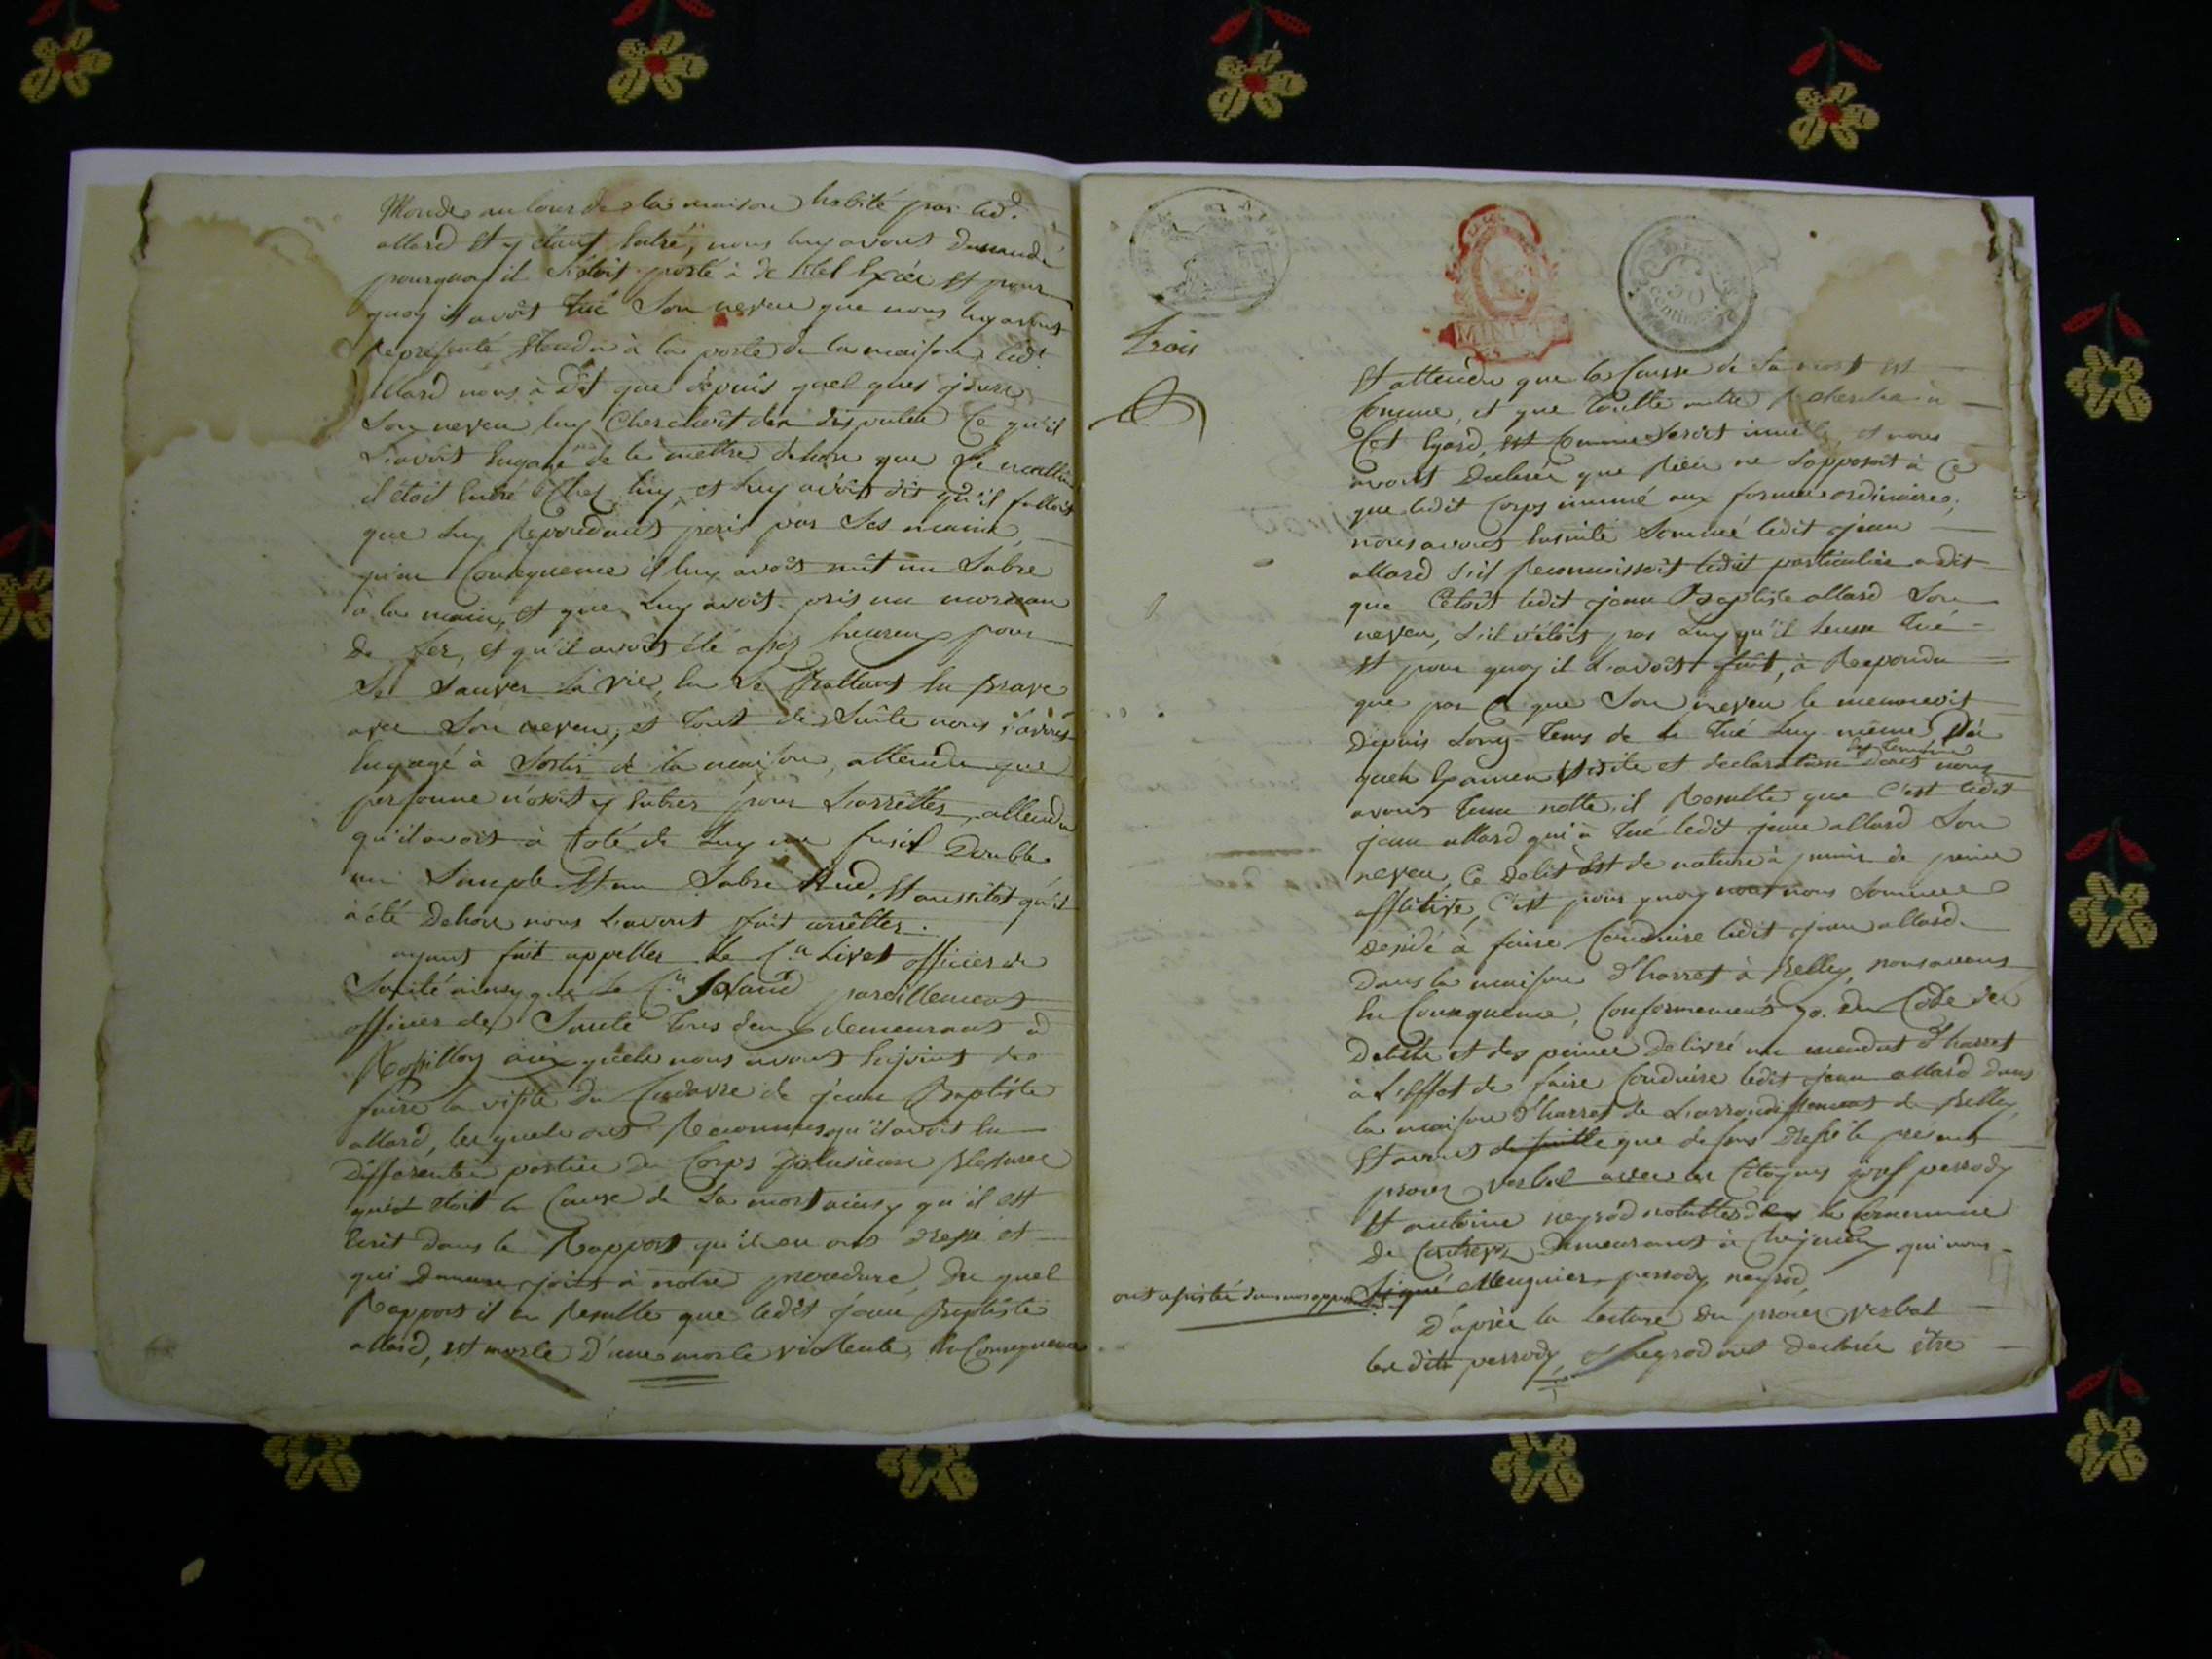 Monde au tour de la maison habité par led.
allard Et y étant Entré, nous luy avons demandé
pourquoy il s'étoit porté à de tel Excés Et pour
quoy il avoit tué Son neveu que nous luy avons
Représenté Etendu à la porte de la maison led.t
allard nous à Dit que depuis quel ques jours
Son neveu luy Cherchoit des disputes Ce qu'il
L'avoit Engagé de le mettre dehors que Ce matin
il étoit Entré Chez luy et luy avoit dit qu'il falloit
que luy Repondant perit par Ses mains
qu'en Consequence il luy avoit mit un Sabre
à la main, et que luy avoit pris un morceau
De fer, et qu'il avoit été assez heureux pour
Se Sauver la vie, En Se Battant En Brave
avec Son neveu, et tout de Suite nous l'avons
Engagé à Sortir de la maison, attendu que
personne n'osoit y Entrer pour L'arrêtter, attendu
qu'il avoit à Coté de luy un fusil Double
un Simple Et un Sabre Nud, Et aussitot qu'il
à été Dehors nous L'avons fait arrêtter.
ayant fait appeller le C.en Livet officier de
Santé ainsy que le C.en pareillement
officier de Santé tous deux demeurant à
Rossillon aux quels nous avons Enjoint de
faire la visite du Cadavre de jean Baptiste
allard, les quels ont Reconnus qu'il avoit En
Differentes parties du Corps plusieurs Blessures
qui étoit la Cause de Sa mort ainsy qu'il est
Ecrit dans le Rapport qu'ils en ont Dressé et
qui Demeure joint à notre procedure, Du quel
Rapport il En Resulte que ledit jean Baptiste
allard, est morte D'une morte viollente, En Consequence
MINUTE
50
Centimes
trois
Et attendu que la Causse de Sa mort est
Connue, et que toutte autre Recherche à
Cet Egard, est Connue Seroit inutile, et nous
avons Declaré que Rien ne S'opposoit à Ce
que ledit Corps inumé aux formes ordinaires;
nous avons Ensuite Sommé ledit jean
allard S'il Reconnoissoit ledit particulier a dit
que C'etoit ledit jean Baptiste allard Son
neveu, S'il n'étoit pas luy qu'il L'eusse tué
Et pour quoy il L'avoit fait, à Repondu
que par Ce que Son neveu le menacoit
Depuis Long-tems de le tué luy-même, D'a
quels Examen visite et declaration Des temoins dont nous
avons tenu notte, il Resulte que C'est ledit
jean allard qui à tué ledit jean allard Son
neveu, Ce Delit Est de nature à punir de peine
afflictive, C'est pour quoy nous nous Sommes
Decidé à faire Conduire ledit jean allard
Dans la maison d'harret à Belley, nous avons
En Consequence, Conformement 70. Du Code des
Delits et des peines Delivré un mandat d'harret
à L'effet de faire Conduire ledit jean allard dans
la maison d'harret de L'arrondissement de Belley
Et avons de suitte que dessus Dressé le présent
proces verbal avec les Citoyens josef perrody
Et antoine neyrod notables dans la Commune
De Contrevoz Demeurant à Chejnieu qui nous
ont assistés dans nos operations Signé Meugnier, perrody, neyrod,
D'aprés la Lecture Du proces verbal
les dits perrody, et neyrod ont Declarés être